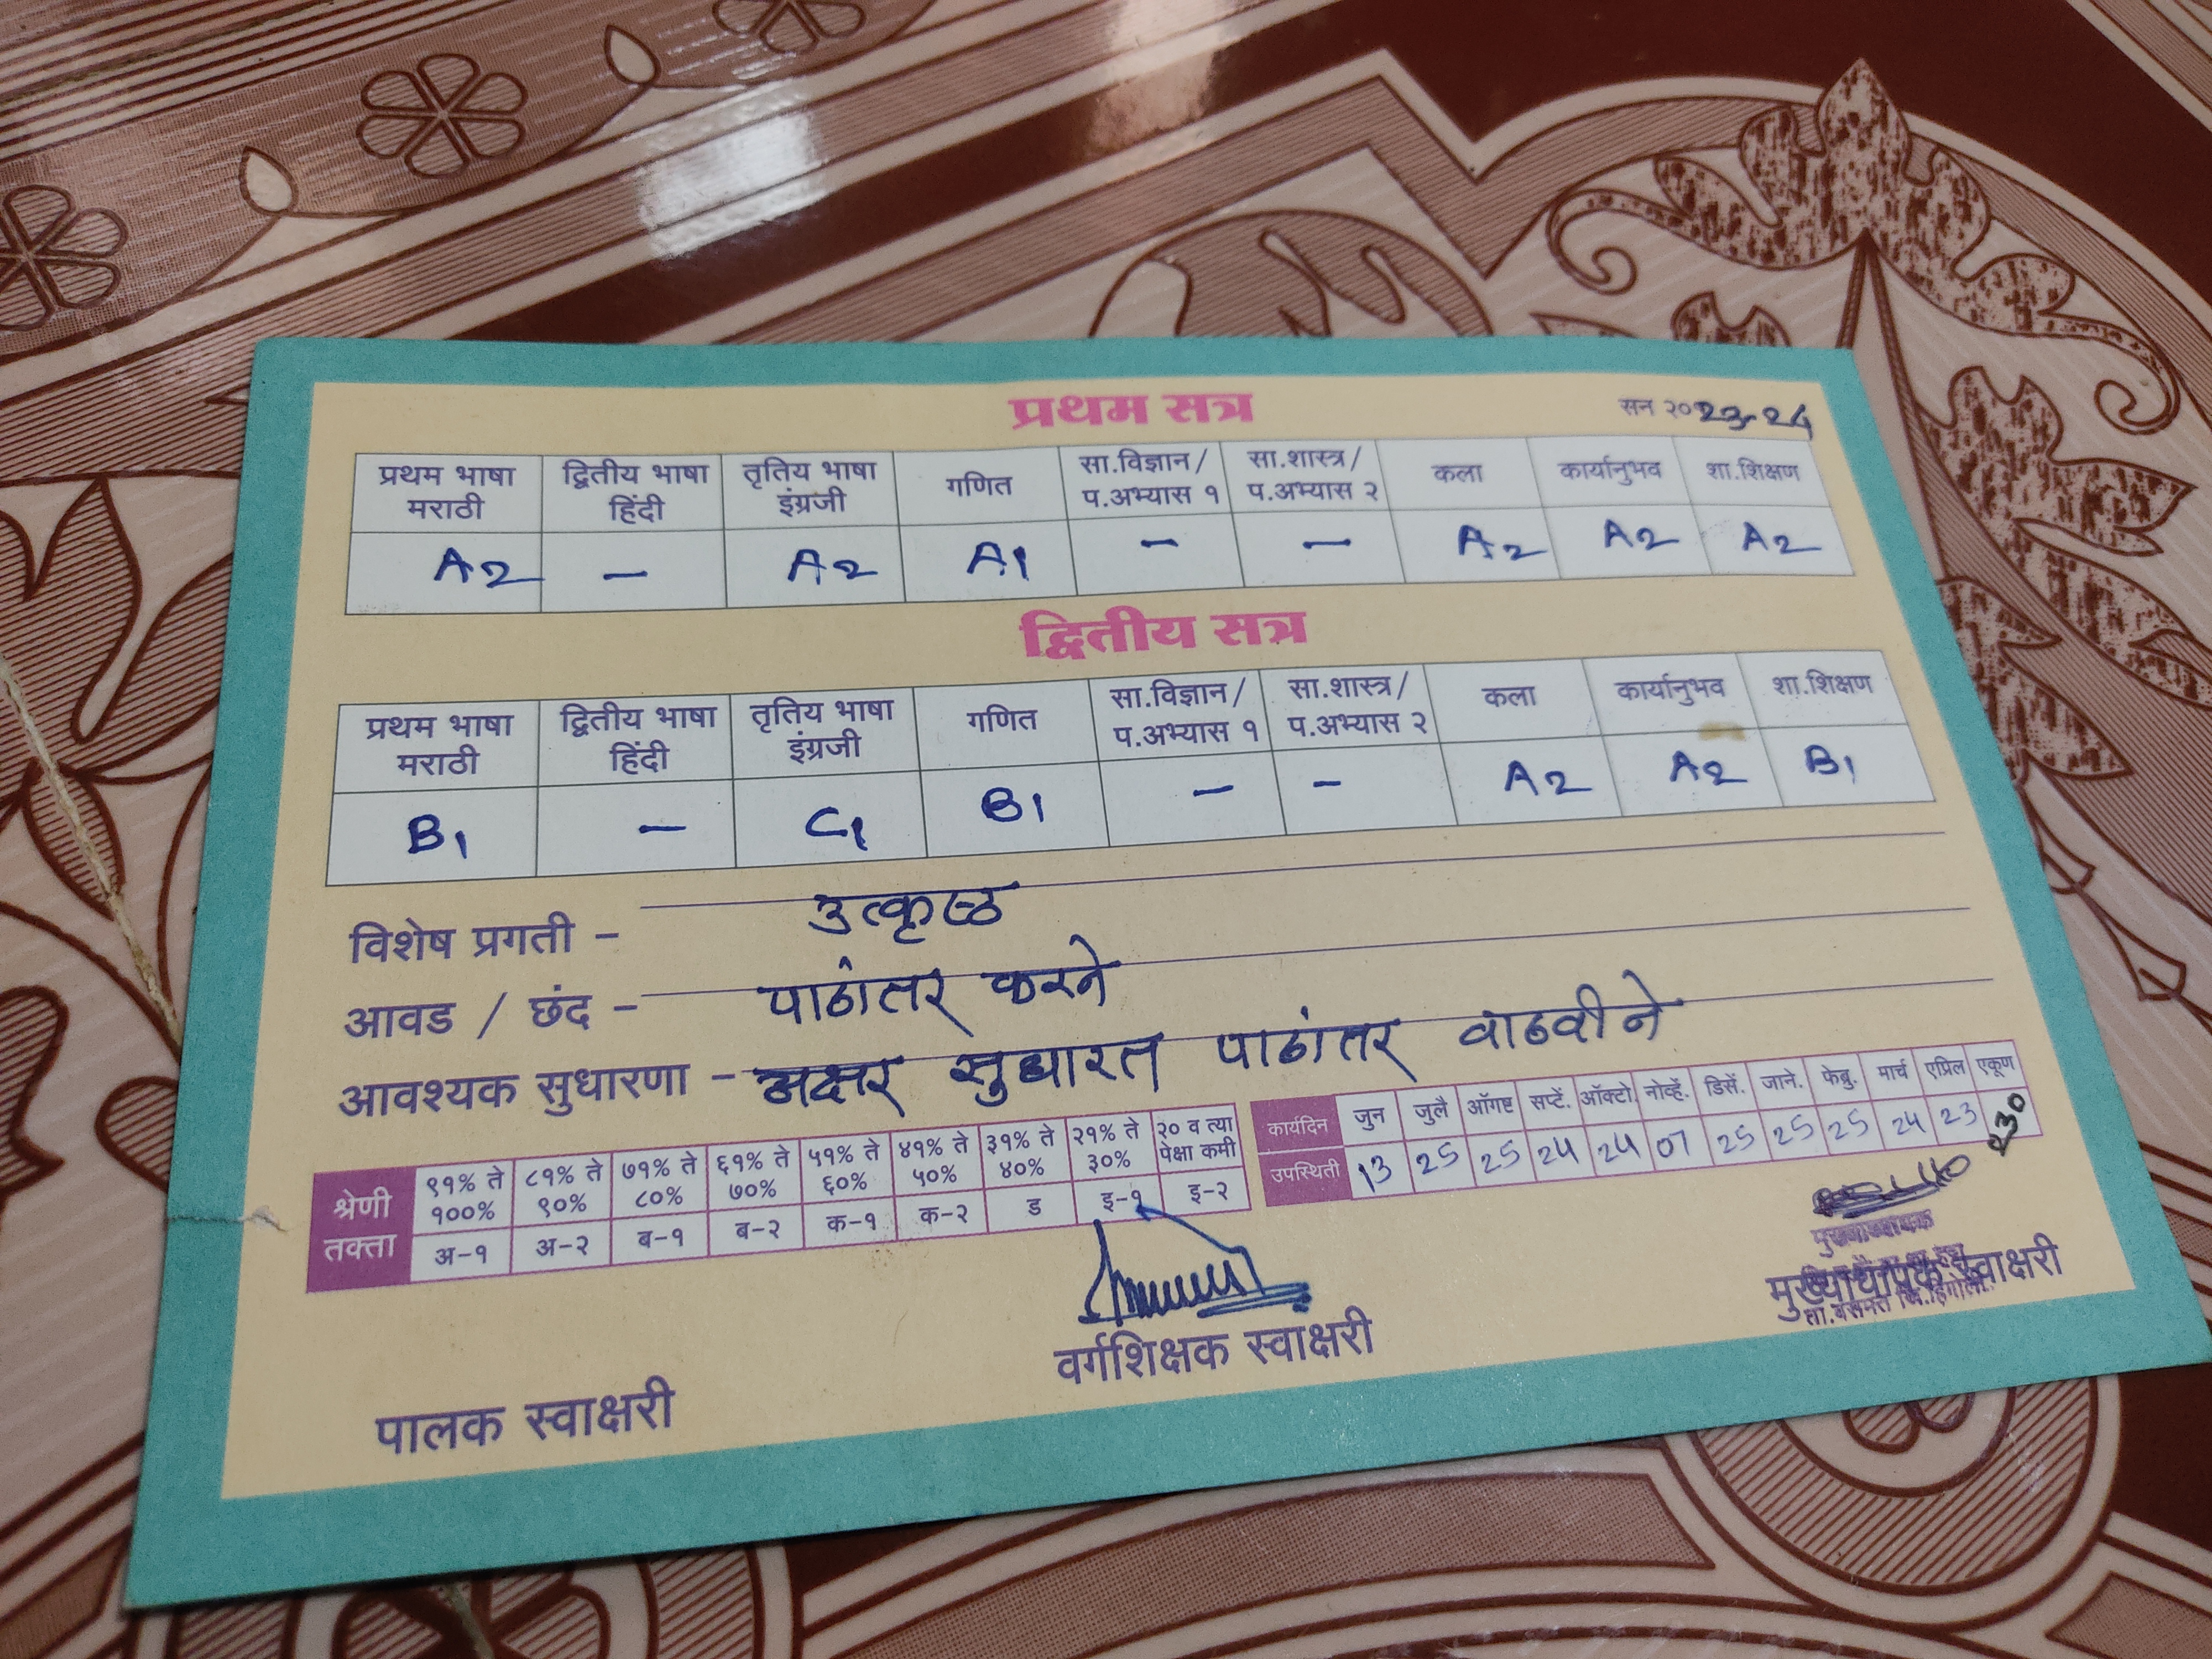 प्रथम सत्र
सन २०23-24
प्रथम भाषा मराठी द्वितीय भाषा हिंदी तृतिय भाषा इंग्रजी गणित सा.विज्ञान/ प.अभ्यास १ सा.शास्त्र/ प.अभ्यास २ कला कार्यानुभव शा.शिक्षण
A2 – A2 A1 – – A2 A2 A2
द्वितीय सत्र
प्रथम भाषा मराठी द्वितीय भाषा हिंदी तृतिय भाषा इंग्रजी गणित सा.विज्ञान/ प.अभ्यास १ सा.शास्त्र/ प.अभ्यास २ कला कार्यानुभव शा.शिक्षण
B1 – C1 B1 – – A2 A2 B1
विशेष प्रगती – उत्कृष्ठ
आवड / छंद – पाठांतर करने
आवश्यक सुधारणा – अक्षर सुधारत पाठांतर वाढवीने
श्रेणी तक्ता ९१% ते १००% ८१% ते ९०% ७१% ते ८०% ६१% ते ७०% ५१% ते ६०% ४१% ते ५०% ३१% ते ४०% २१% ते ३०% २० व त्या पेक्षा कमी
अ-१ अ-२ ब-१ ब-२ क-१ क-२ ड इ-१ इ-२
कार्यदिन जुन जुलै ऑगष्ट सप्टें. ऑक्टो. नोव्हें. डिसें. जाने. फेब्रु. मार्च एप्रिल एकूण
उपस्थिती 13 25 25 24 24 07 25 25 25 24 23 230
मुख्याध्यापक
मुख्याधापक स्वाक्षरी
ता.वसमत जि.हिंगोली.
वर्गशिक्षक स्वाक्षरी
पालक स्वाक्षरी